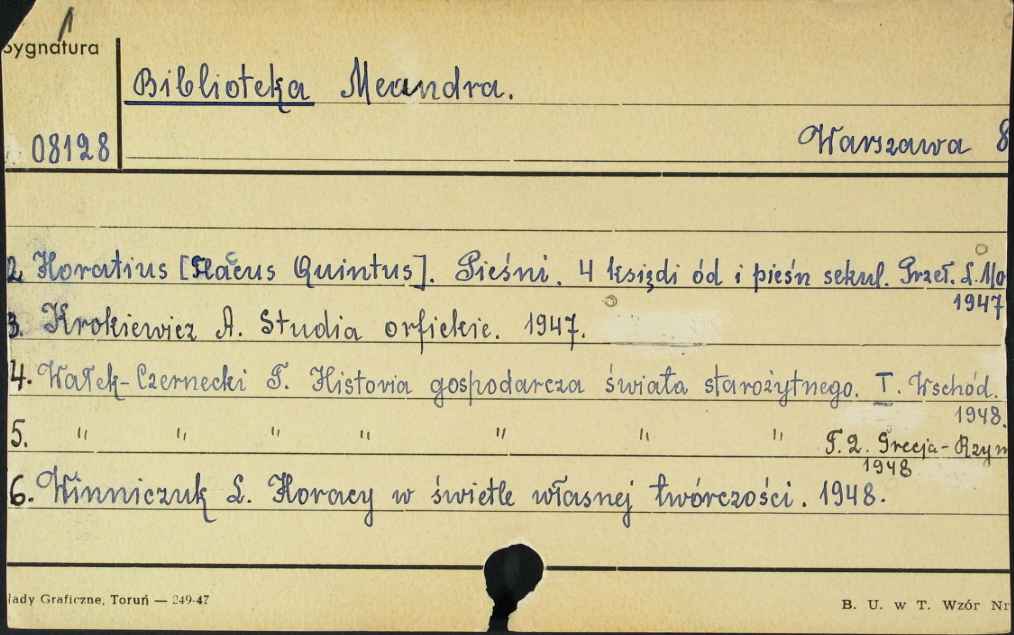 Sygnatura
Biblioteka Meandra.
08128
Warszawa 8
2. Horatius [Flaccus Quintus]. Pieśni. 4 księgi ód i pieśn sekul. Przeł. L. Mo
1947
3. Krokiewicz A. Studia orfickie. 1947.
4. Wałek-Czernecki T. Historia gospodarcza świata starożytnego. T. I. Wschód.
1948.
5. " " " " " " " T. 2. Grecja - Rzym
1948
6. Winniczuk L. Horacy w świetle własnej twórczości. 1948.
łady Graficzne, Toruń — 249-47
B. U. w T. Wzór Nr